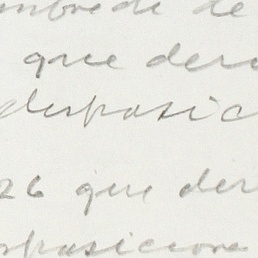 de
que der
disposic
26 que der
sposicione